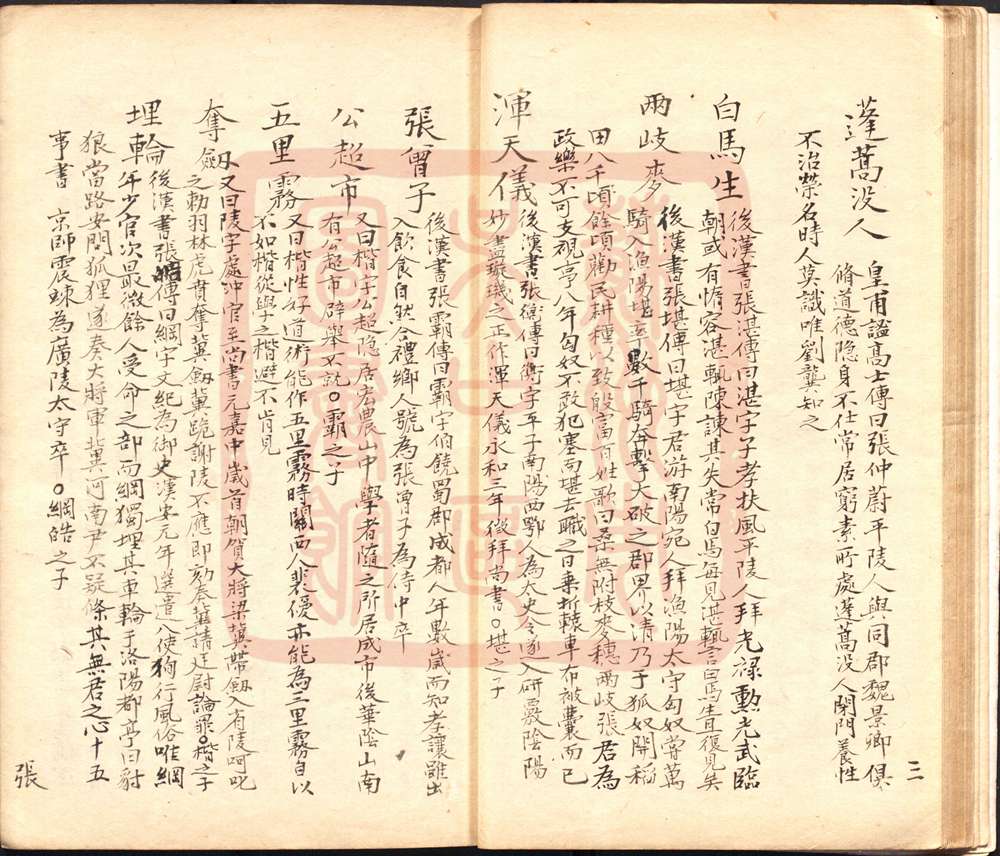 蓬蒿没人 皇甫謐高士傳曰張仲蔚平陵人與同郡魏景卿俱
脩道德隐身不仕常居窮素所處蓬蒿没人閑門養性
不治榮名時人莫識唯劉龔知之
白馬生 後漢書張湛傳曰湛字子孝扶風平陵人拜光禄勳光武臨
朝或有惰容湛輒陳諫其失常白馬每見湛輒言白馬生且復見矣
兩岐麥 後漢書張堪傳曰堪字君游南陽宛人拜漁陽太守匈奴嘗萬
騎入漁陽堪率數千騎奔擊大破之郡界以清乃于狐奴開稻
田八千頃餘頃勸民耕種以致殷富百姓歌曰桑無附枝麥穗兩岐張君為
政樂不可支視亭八年匈奴不敢犯塞而堪去職之日乘折轅車布被囊而已
渾天儀 後漢書張衡傳曰衡字平子南陽西鄂人為太史令遂入研覈陰陽
妙盡璇璣之正作渾天儀永和三年徵拜尚書○堪之子
張曾子 後漢書張霸傳曰霸字伯饒蜀郡成都人年數歲而知孝讓雖出
入飲食自然合禮鄉人號為張曾子為侍中卒
公超市 又曰楷字公超隐居宏農山中學者隨之所居成市後華陰山南
有公超市辟舉不就○霸之子
五里霧 又曰楷性好道術能作五里霧時關西人裴優亦能為三里霧自以
不如楷從學之楷避不肯見
奪劍 又曰陵字處冲官至尚書元嘉中歲首朝賀大將梁冀帶劔入省陵呵叱
之勅羽林虎賁奪冀劔冀跪謝陵不應即劾奏冀請廷尉論罪○楷之子
埋輪 後漢書張皓傳曰綱字文紀為御史漢安元年選遣八使狥行風俗唯綱
年少官次最微餘人受命之部而綱獨埋其車輪于洛陽都亭曰豺
狼當路安問狐狸遂奏大將軍冀河南尹不疑條其無君之心十五
事書 京師震竦為廣陵太守卒○綱皓之子
三
張